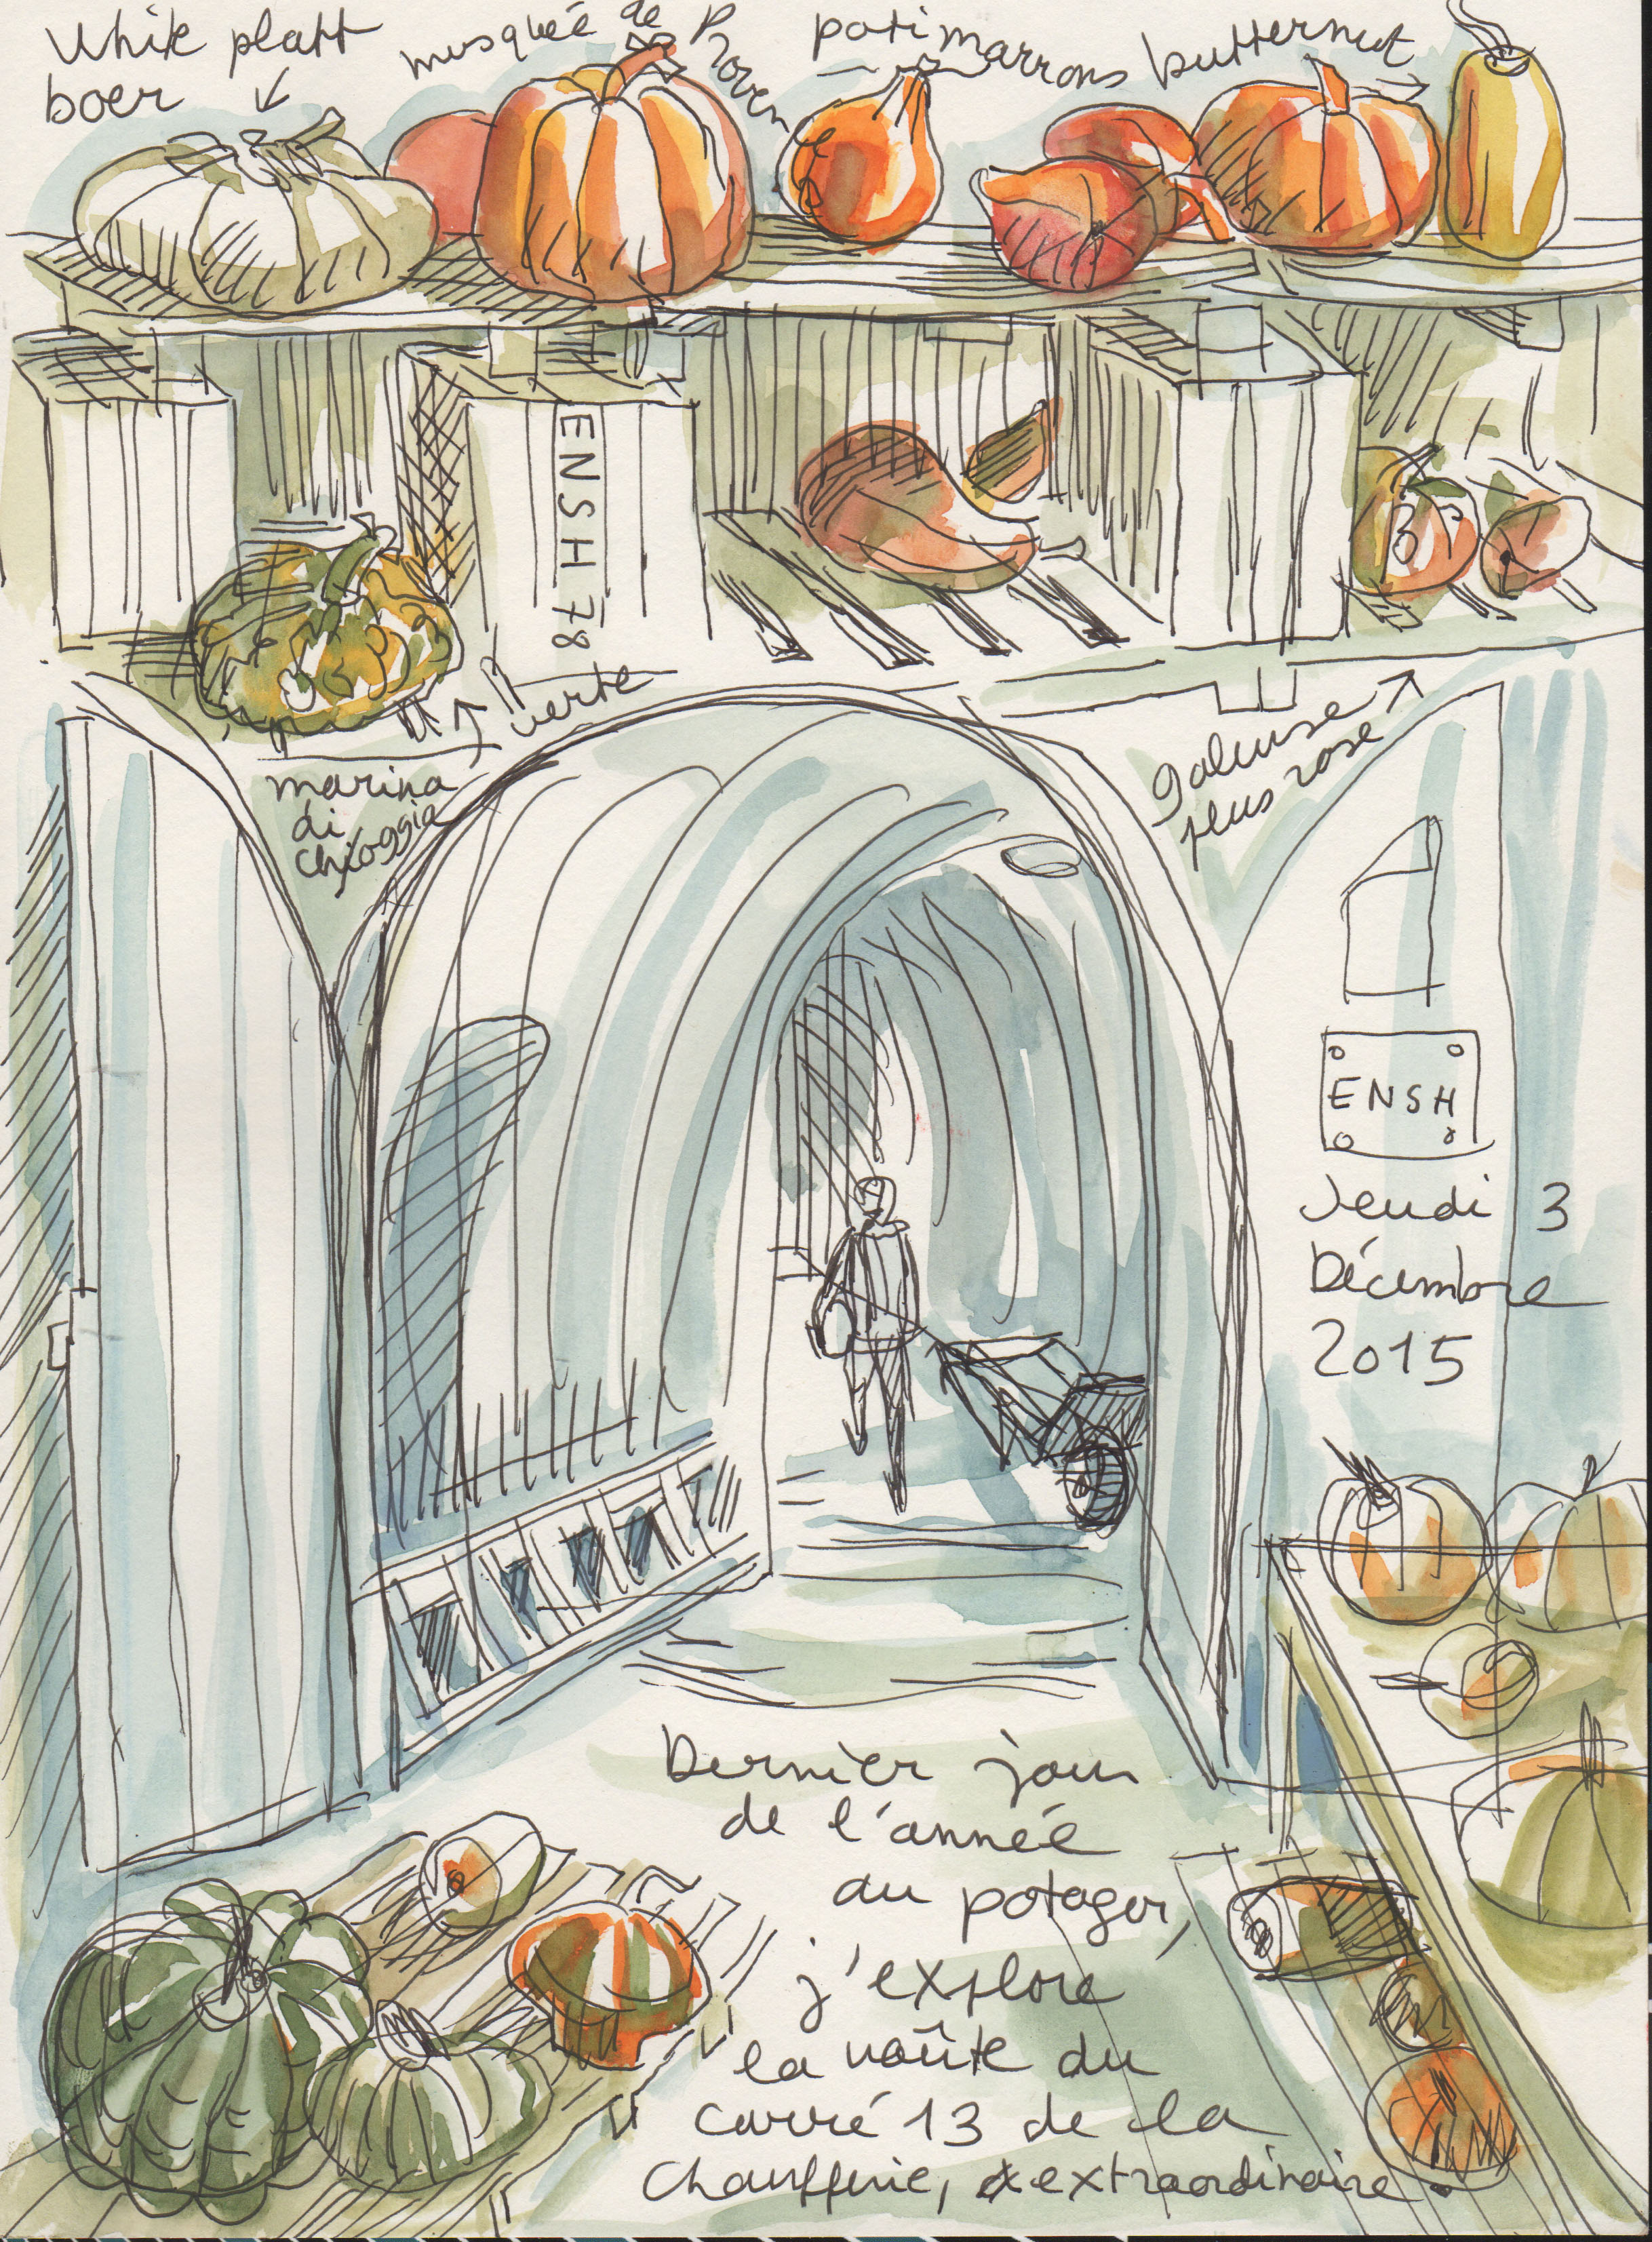 White platt
boer
musquée de Provence
potimarrons
butternut
ENSH 78
verte
marina
di
chioggia
galeuse
plus rose
ENSH
Jeudi 3
Décembre
2015
Dernier jour
de l'année
au potager,
j'explore
la voûte du
carré 13 de la
Chaufferie, extraordinaire.